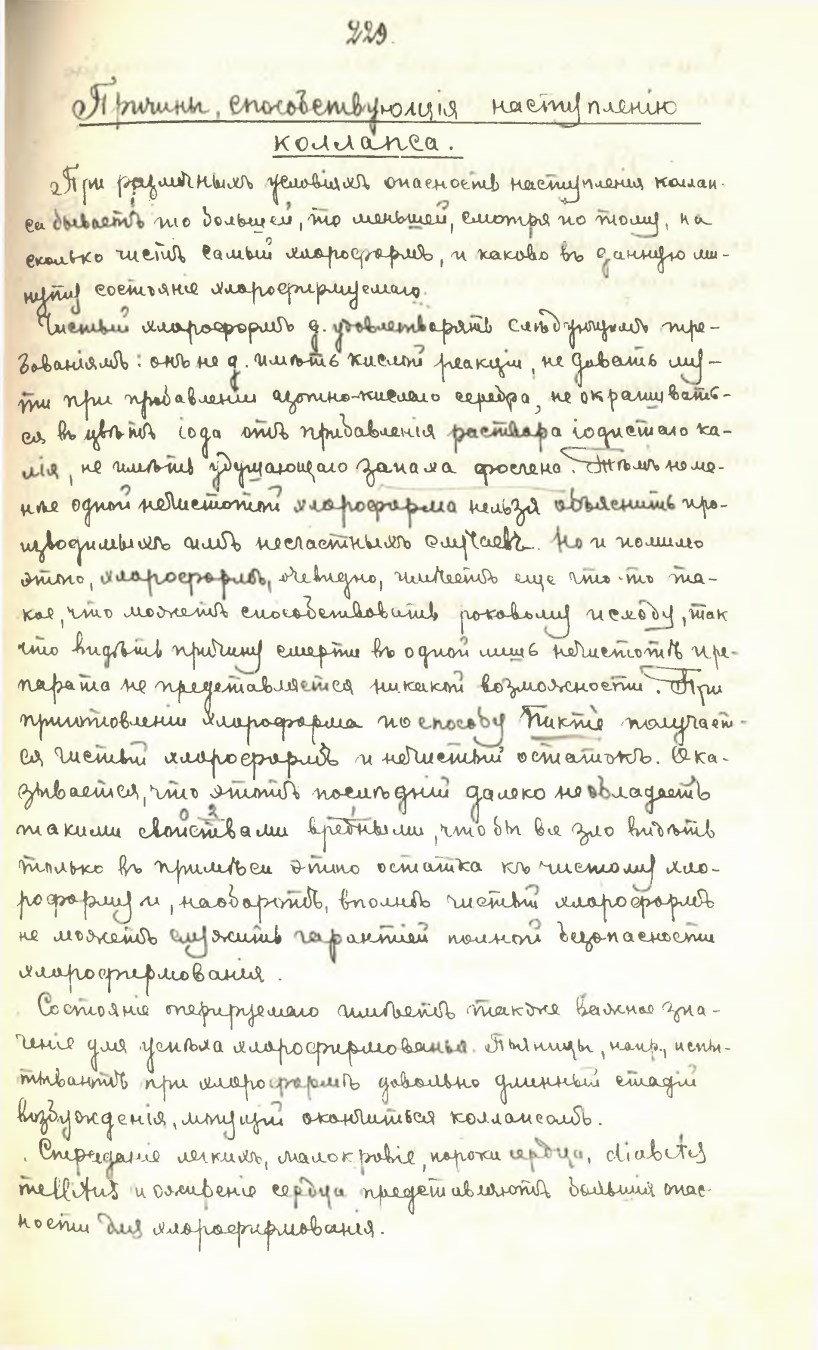 229.
Причины, способствующія наступленію
коллапса.
При различныхъ условіяхъ опасность наступленія коллап-
са бываетъ то большей, то меньшей, смотря по тому, на
сколько чистъ самый хлороформъ, и каково въ данную ми-
нуту состояніе хлороформируемаго.
Чистый хлороформъ д. удовлетворять слѣдующимъ тре-
бованіямъ: онъ не д. имѣть кислой реакціи, не давать му-
ти при прибавленіи азотно-кислаго серебра, не окрашивать-
ся въ цвѣтъ іода отъ прибавленія раствора іодистаго ка-
лія, не имѣть удушающаго запаха фосгена. Тѣмъ не ме-
нѣе одной нечистотой хлороформа нельзя объяснить про-
изводимыхъ имъ несчастныхъ случаевъ. Но и помимо
этого, хлороформъ, очевидно, имѣетъ еще что-то та-
кое, что можетъ способствовать роковому исходу, так
что видѣть причину смерти въ одной лишь нечистотѣ пре-
парата не представляется никакой возможности. При
приготовленіи хлороформа по способу Пиктè получает-
ся чистый хлороформъ и нечистый остатокъ. Ока-
зывается, что этотъ послѣдній далеко не обладаетъ
такими свойствами вредными, чтобы все зло видѣть
только въ примѣси этого остатка къ чистому хло-
роформу и, наоборотъ, вполнѣ чистый хлороформъ
не можетъ служить гарантіей полной безопасности
хлороформированія.
Состояніе оперируемаго имѣетъ также важное зна-
ченіе для успѣха хлороформированья. Пьяницы, напр., испы-
тываютъ при хлороформѣ довольно длинный стадій
возбужденія, могущій окончиться коллапсомъ.
Страданіе легкихъ, малокровіе, пороки сердца, diabetes
mellitus и ожиреніе сердца представляютъ большія опас-
ности для хлороформированія.